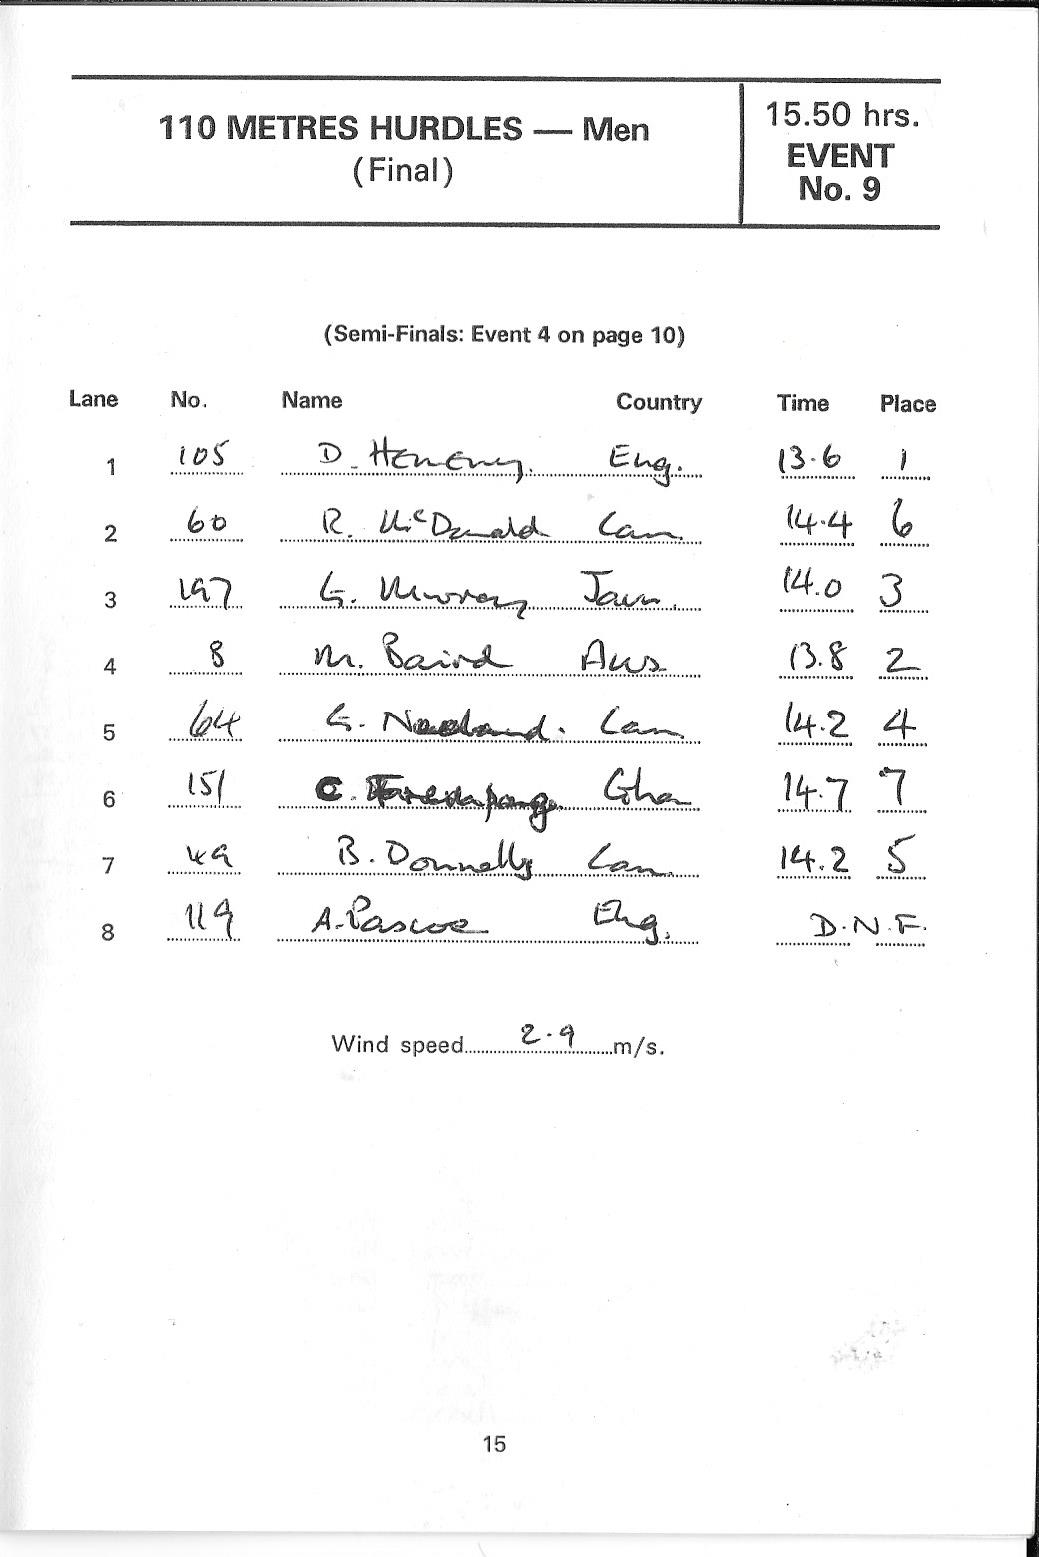 110 METRES HURDLES — Men
(Final)
15.50 hrs.
EVENT
No. 9
(Semi-Finals: Event 4 on page 10)
Lane No. Name Country Time Place
1 105 D. Hemery. Eng. 13.6 1
2 60 R. McDonald Can. 14.4 6
3 197 G. Murray Jam. 14.0 3
4 8 M. Baird Aus 13.8 2
5 64 G. Can 14.2 4
6 151 C. Gha 14.7 7
7 49 B. Donnelly Can. 14.2 5
8 119 A. Pascoe Eng. D.N.F.
Wind speed 2.9 m/s.
15